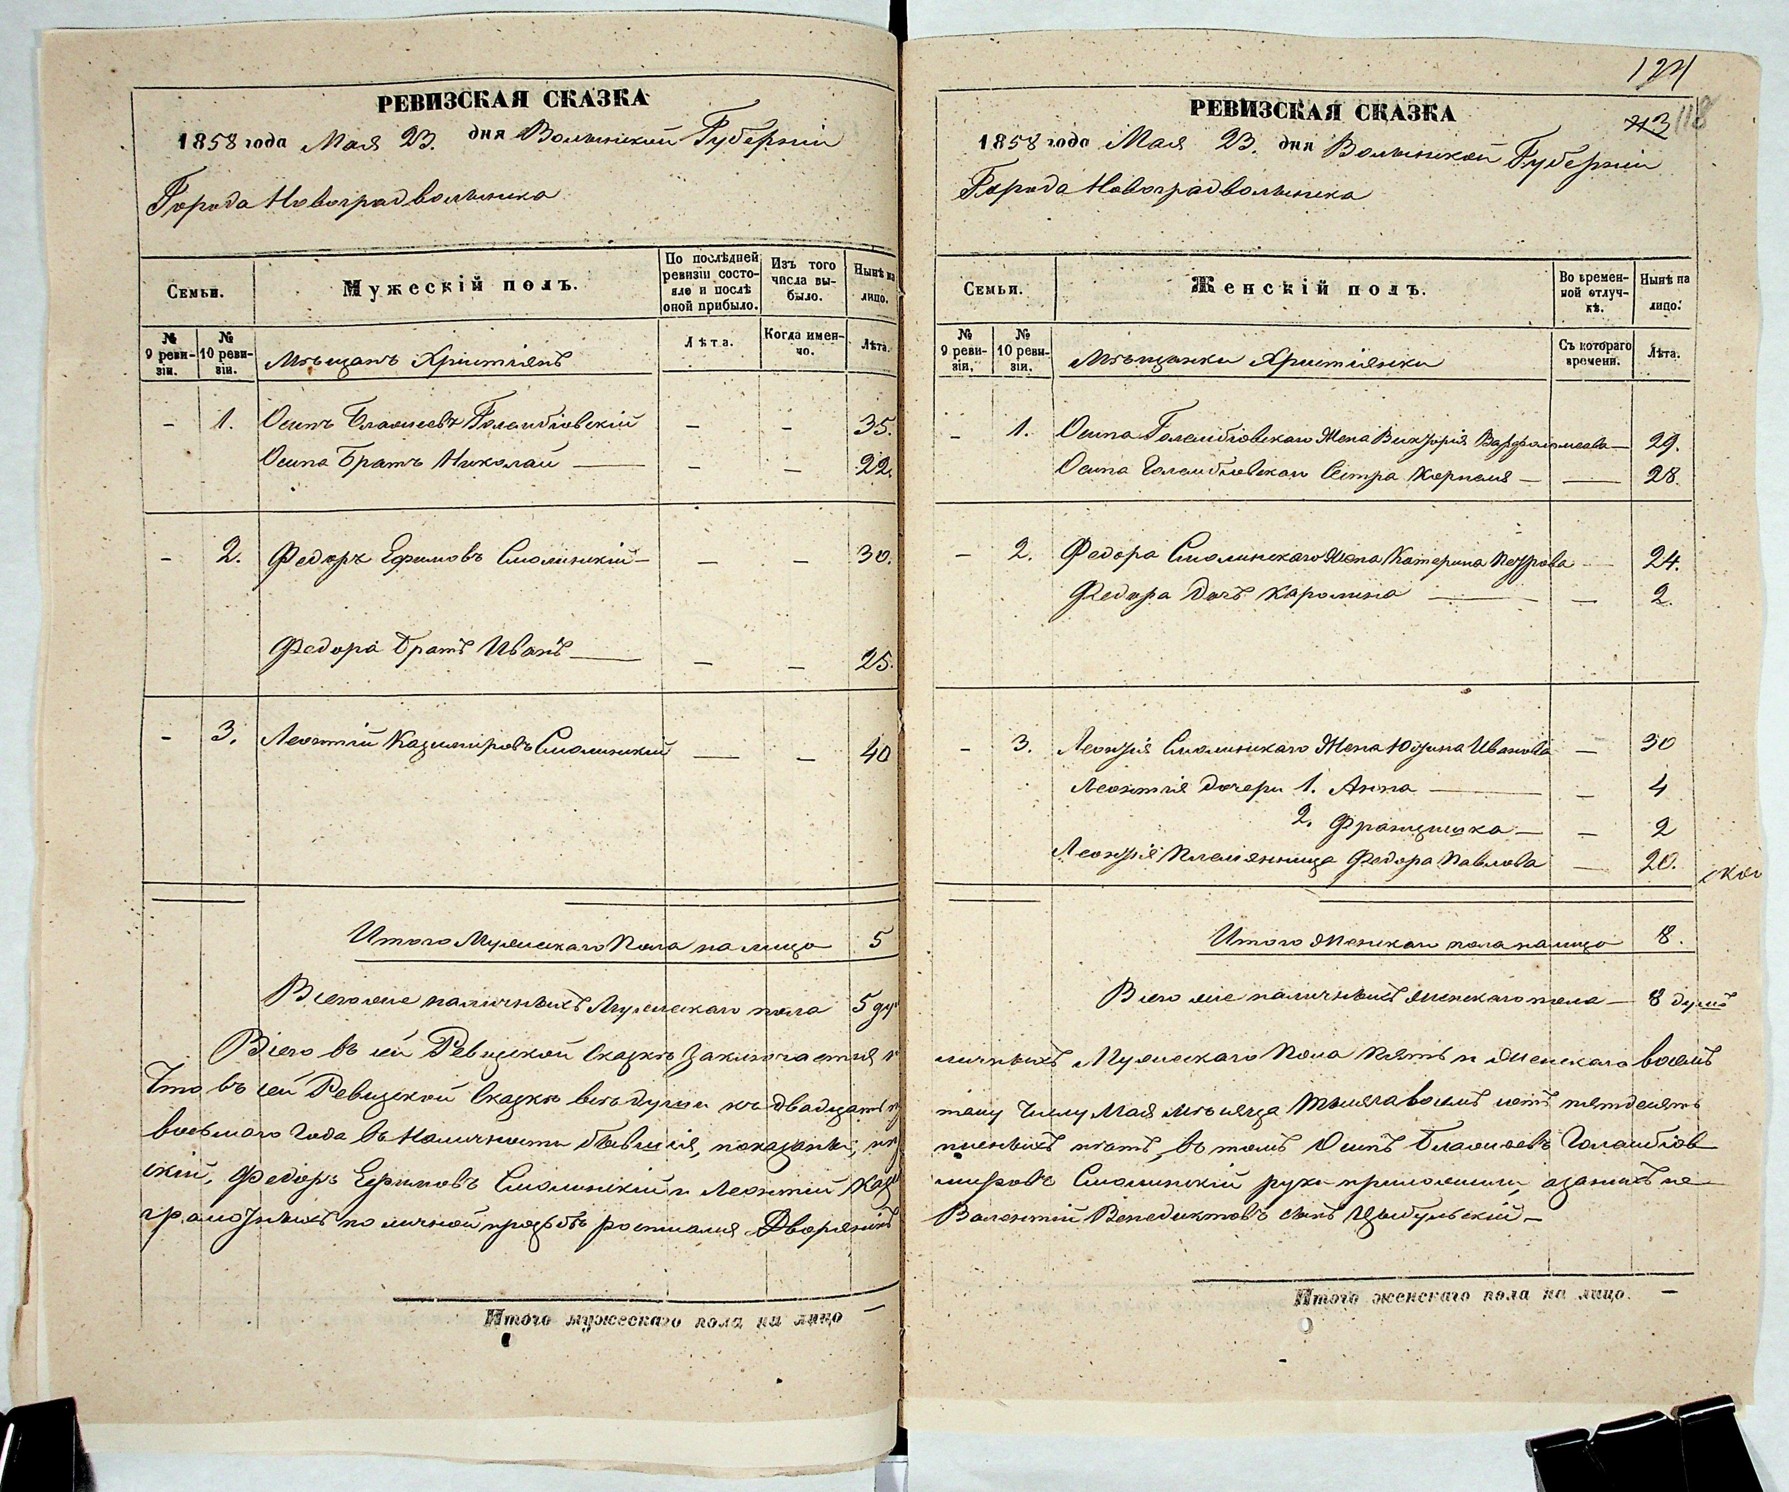 РЕВИЗСКАЯ СКАЗКА
1858 года Мая 23. дня Волынской Губерніи
Города Новоградволынска
Семьи.
Мужескій полъ.
По послѣдней ревизіи состояло и послѣ оной прибыло.
Изъ того числа выбыло.
Нынѣ на лицо.
№ 9 ревизіи.
№ 10 ревизіи.
Мѣщанъ Христіянъ
Лѣта.
Когда именно.
Лѣта.
– 1. Осипъ Блаѳиевъ Голембіовскій – – 35.
Осипа Братъ Николай – – – 22.
– 2. Федоръ Ефимовъ Смолинскій – – – 30.
Федора Братъ Иванъ – – – 25.
– 3. Леонтій Казиміровъ Смолинскій – – 40
Итого Мужескаго Пола на лицо 5
Всего же наличныхъ Мужескаго пола 5 ду
Всего въ сей Ревизской Сказкѣ заключается
Что въ сей Ревизской Сказкѣ всѣ души къ двадцать
восьмаго Года въ Наличности бывшія, показаны,
скій, Федоръ Ефимовъ Смолинскій и Леонтій Кази
грамотныхъ по личной прозбѣ росписался Дворянинъ
Итого мужескаго пола на лицо –
124
118
РЕВИЗСКАЯ СКАЗКА
1858 года Мая 23. дня Волынской Губерніи
Города Новоградволынска
Семьи.
Женскій полъ.
Во временной отлучкѣ.
Нынѣ на лицо.
№ 9 ревизіи.
№ 10 ревизіи.
Мѣщанки Христіянки
Съ котораго времени.
Лѣта.
– 1. Осипа Голембіовскаго Жена Викторія Варфоломеева – 29.
Осипа Голембіовскаго Сестра Корнеля – – 28.
– 2. Федора Смолинскаго Жена Катерина Петрова – 24.
Федора дочь Каролина – – 2.
– 3. Леонтія Смолинскаго Жена Юзина Иванова – 30
Леонтія дочери 1. Анна – – 4
2. Францишка – – 2
Леонтія Племянница Федора Павлова – 20.
Итого Женскаго пола на лицо 8.
Всего же наличныхъ женскаго пола – 8 душъ
личныхъ Мужескаго Пола пять и женскаго восемь
тому Числу Мая мѣсяца тысяча восемь сотъ пятдесятъ
пѣтъ, въ томъ Осипъ Блаѳиевъ Голембіов
міровъ Смолинскій руки приложили, а занихъ не
Валентій Венедиктовъ сынъ Цыбульскій –
Итого женскаго пола на лицо. –